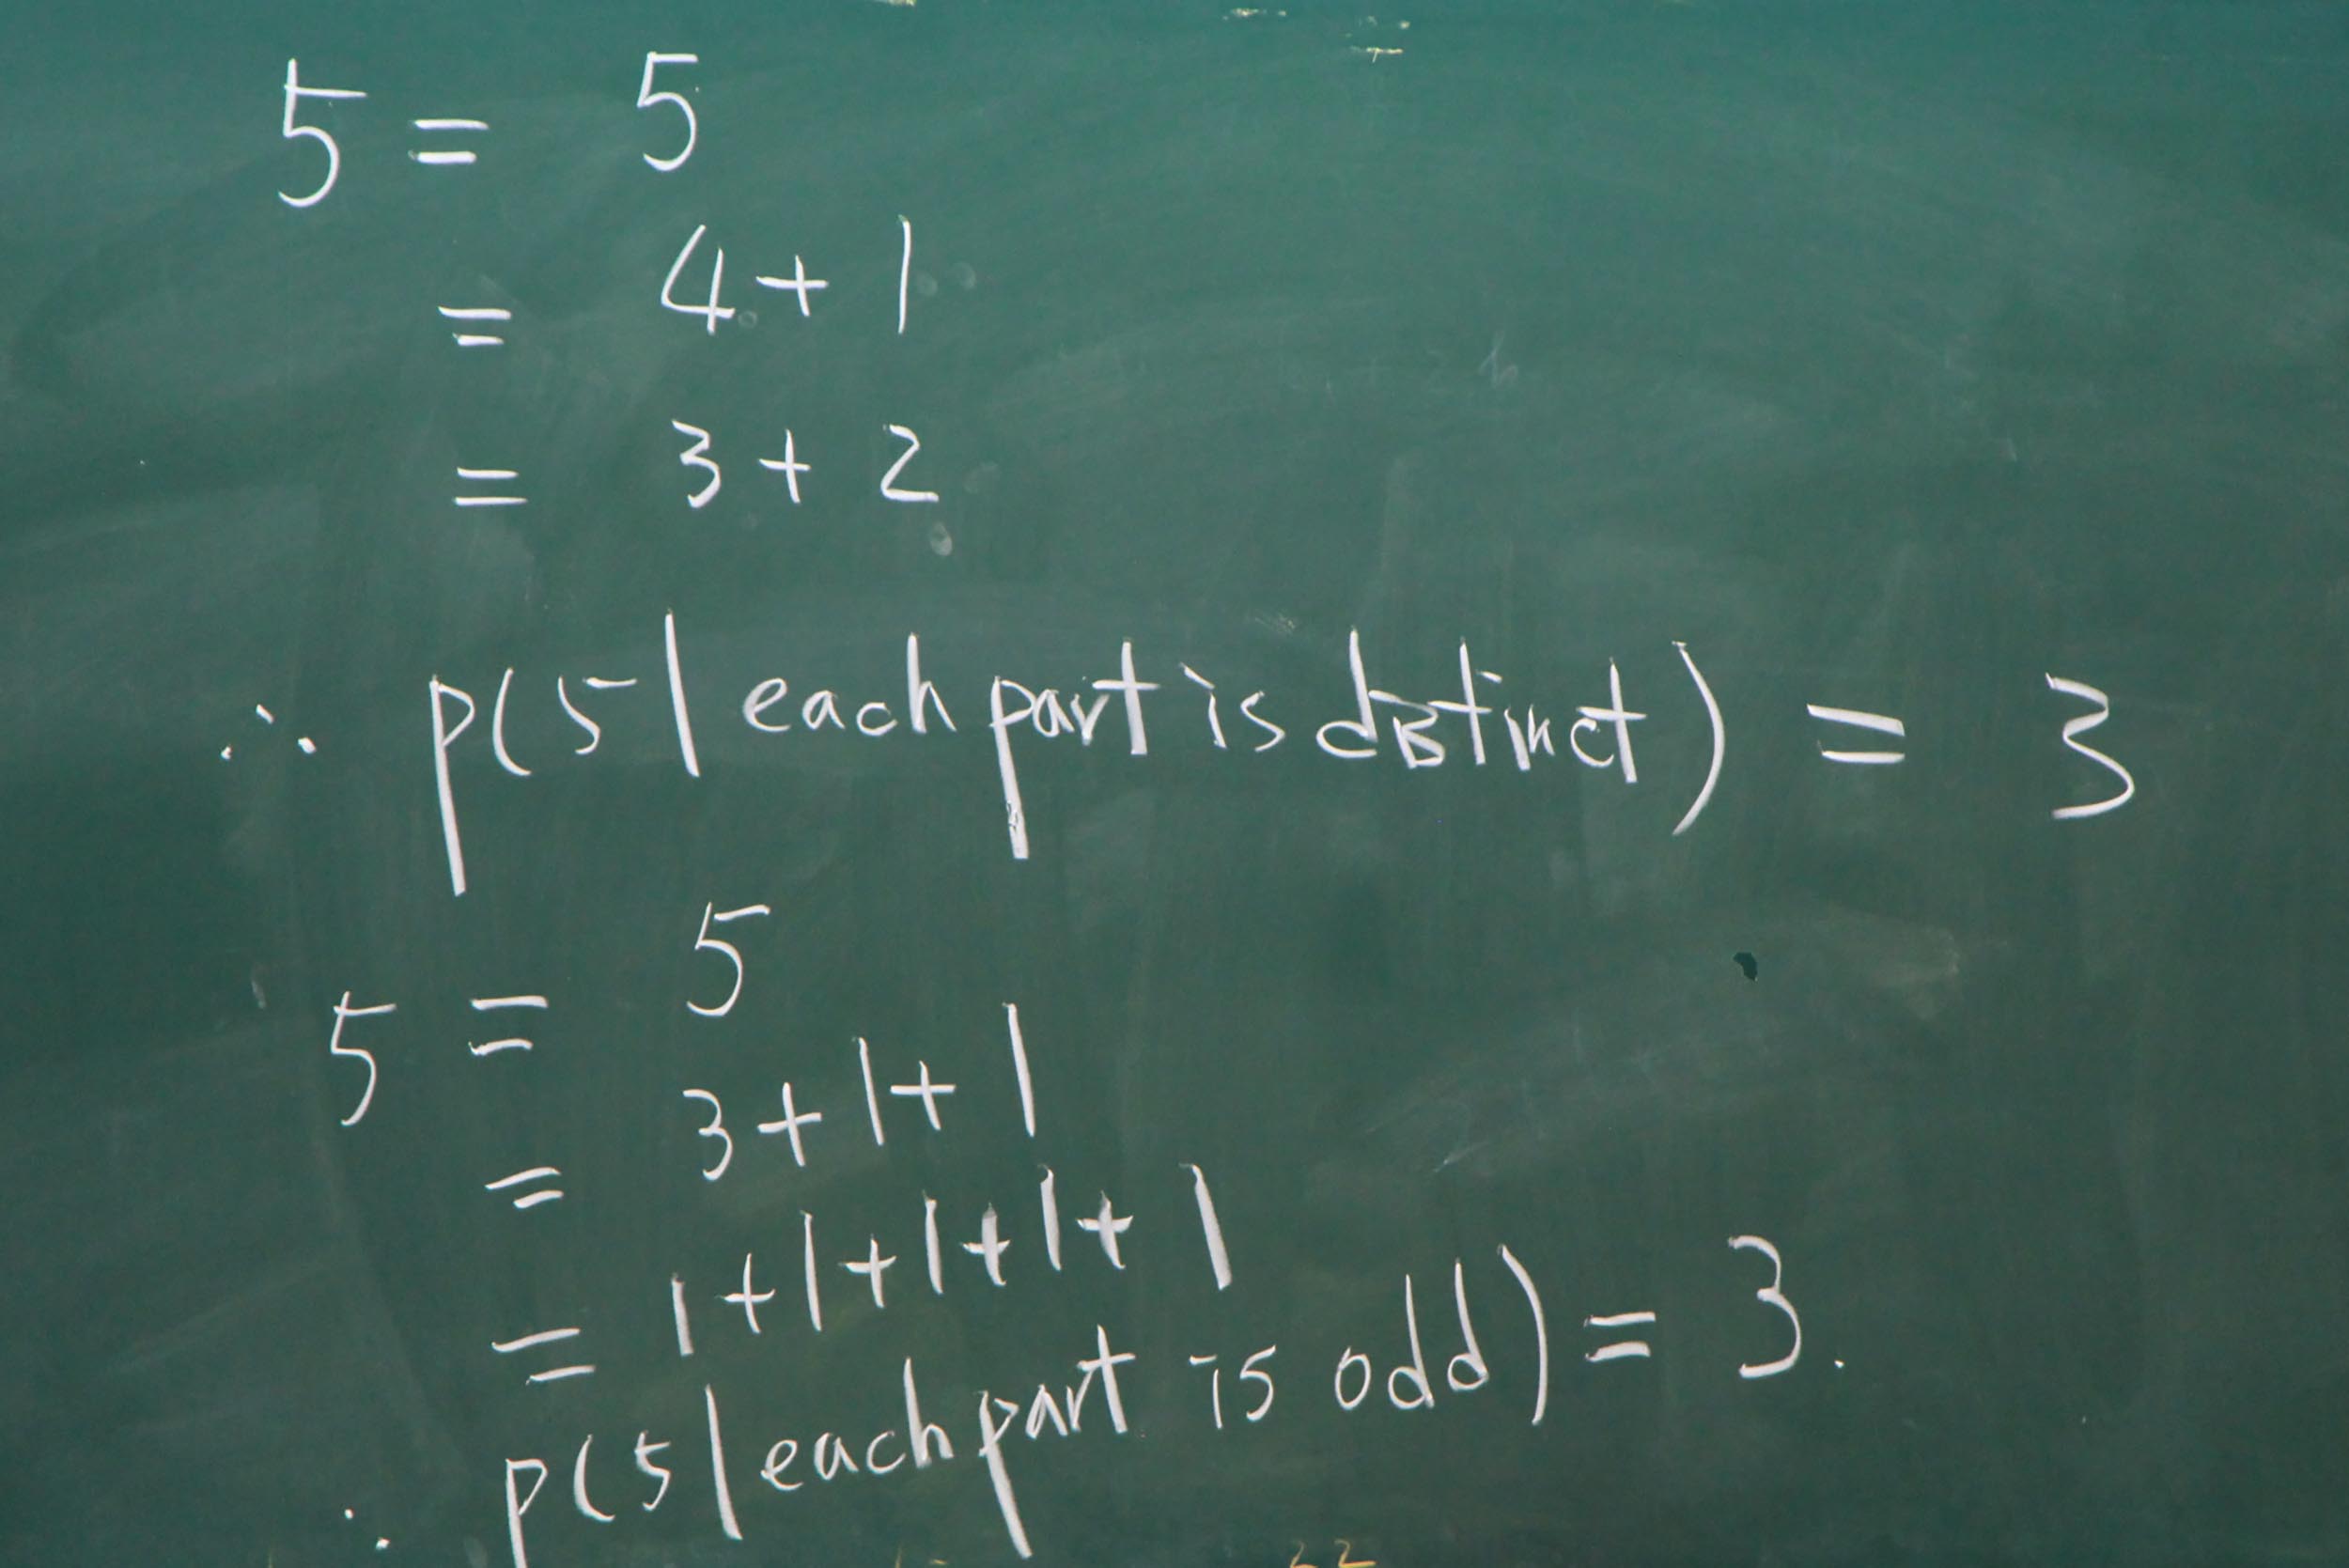 5 = 5
= 4 + 1
= 3 + 2
∴ p(5 | each part is distinct) = 3
5 = 5
= 3 + 1 + 1
= 1 + 1 + 1 + 1 + 1
∴ p(5 | each part is odd) = 3.